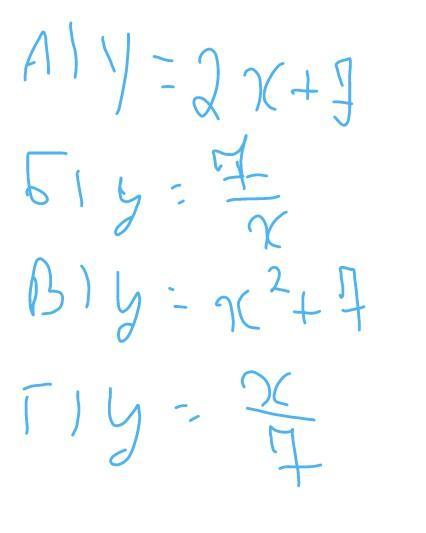 А) y = 2x + 7
Б) y = 7/x
В) y = x² + 7
Г) y = x/7